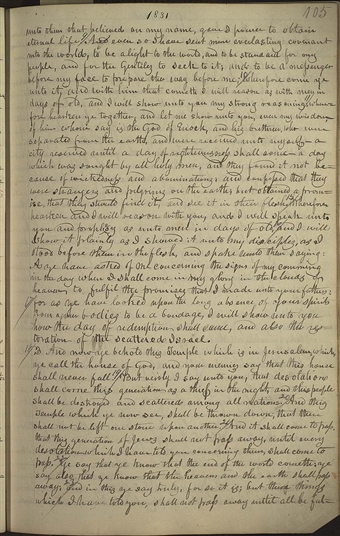 1831
105
unto them that believed on my name, gave I power to obtain
eternal life. And even so I have sent mine everlasting covenant
into the world, to be a light to the world, and to be a standard for my
people, and for the Gentiles to seek to it, and to be a messenger
before my face to prepare the way before me. Wherefore come ye
unto it, and with him that cometh I will reason as with men in
days of old, and I will show unto you my strong reasoning. Wherefore
hearken ye together, and let me show unto you, even my wisdom
of him whom ye say is the God of Enoch, and his brethren, who were
separated from the earth, and were received unto myself—a
city reserved until a day of righteousness shall come—a day
which was sought for by all holy men, and they found it not be-
cause of wickedness and abominations; and confessed that they
were strangers and pilgrims on the earth; but obtained a prom-
ise, that they should find it, and see it in their flesh. Wherefore
hearken and I will reason with you, and I will speak unto
you and prophesy as unto men in days of old, and I will
show it plainly as I showed it unto my disciples, as I
stood before them in the flesh, and spake unto them saying:
As ye have asked of me concerning the signs of my coming
in the day when I shall come in my glory in the clouds of
heaven, to fulfil the promises that I made unto your fathers;
for as ye have looked upon the long absence of your spirits
from your bodies to be a bondage, I will show unto you
how the day of redemption shall come, and also the res-
toration of the scattered Israel.
And now ye behold this temple which is in Jerusalem, which
ye call the house of God, and your enemies say that this house
shall never fall. But verily I say unto you, that desolation
shall come upon this generation as a thief in the night, and this people
shall be destroyed and scattered among all nations. And this
temple which ye now see, shall be thrown down, that there
shall not be left one stone upon another. And it shall come to pass,
that this generation of Jews shall not pass away, until every
desolation which I have told you concerning them, shall come to
pass. Ye say that ye know that the end of the world cometh; ye
say also that ye know that the heavens and the earth shall pass
away; and in this ye say truly, for so it is; but these things
which I have told you, shall not pass away until all be ful-